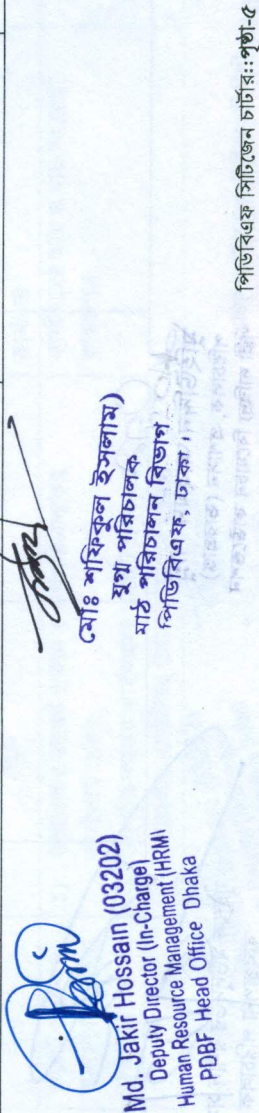 Md. Jakir Hossain (03202)
Deputy Director (In-Charge)
Human Resource Management (HRM)
PDBF Head Office Dhaka
(মোঃ শফিকুল ইসলাম)
যুগ্ম পরিচালক
মাঠ পরিচালন বিভাগ
পিডিবিএফ, ঢাকা।
পিডিবিএফ সিটিজেন চার্টার::পৃষ্ঠা-৫